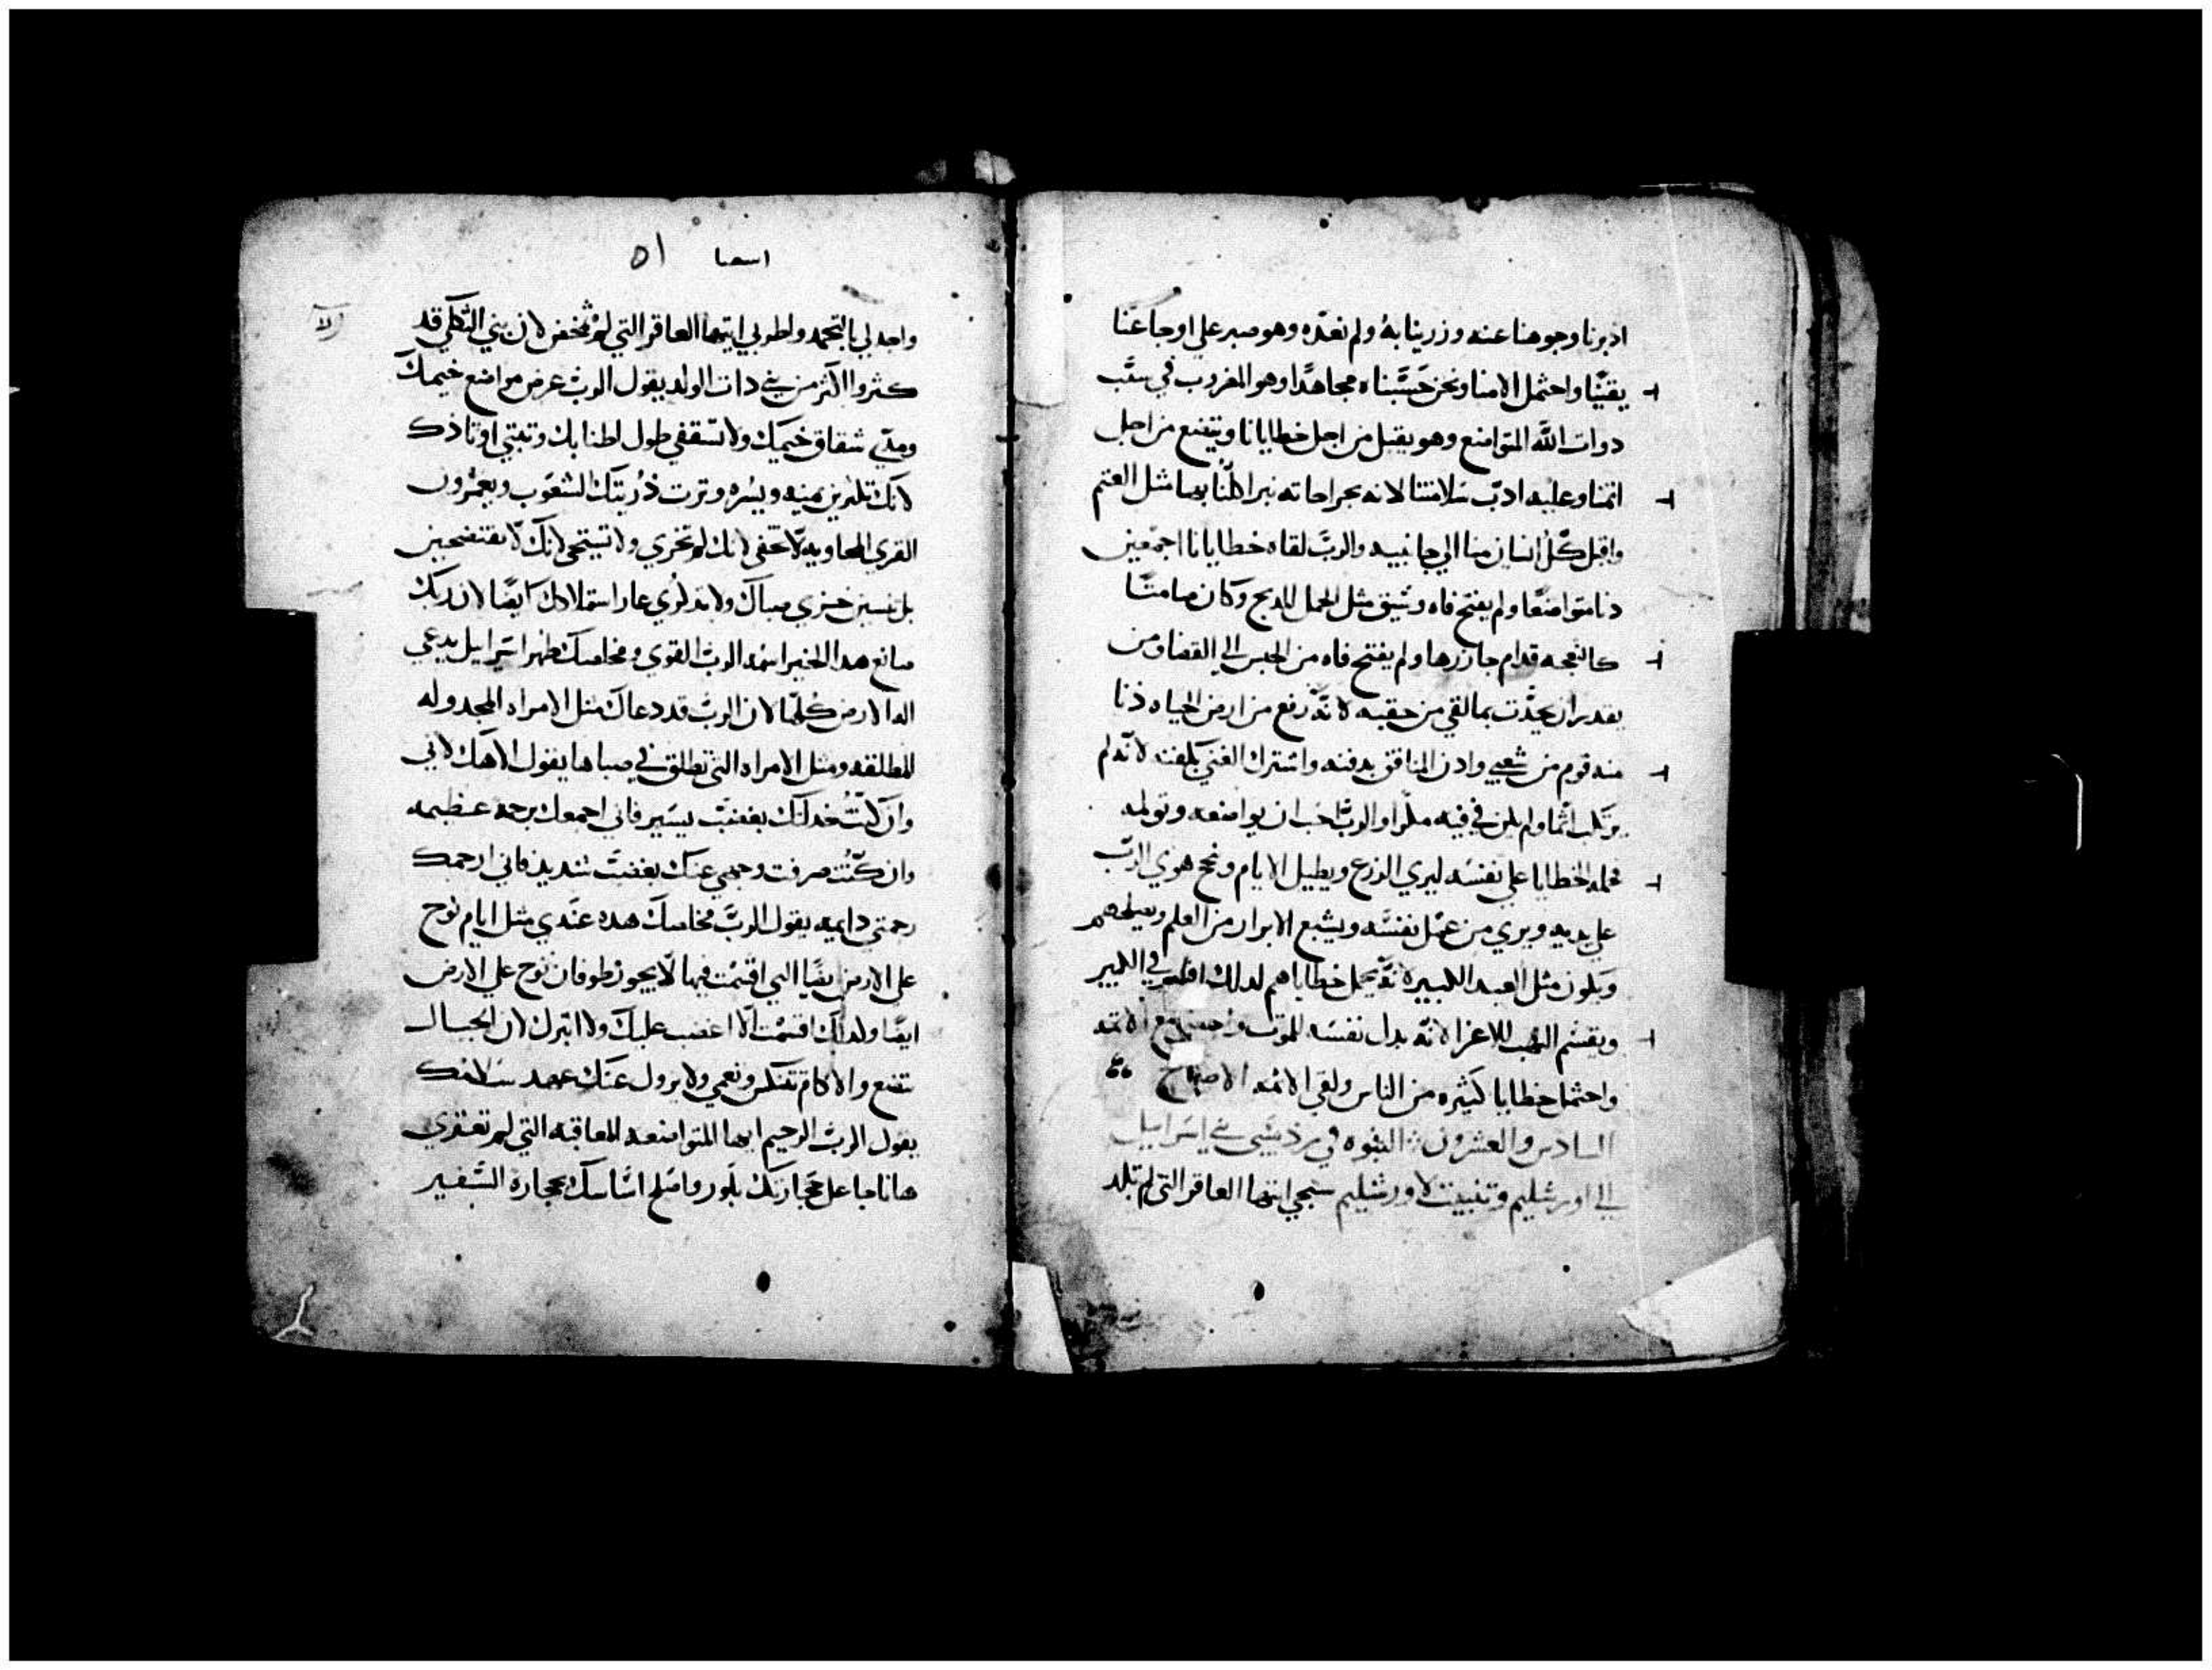 ادبرنا وجوهنا عنه وزرينا به ولم نعدّه وهو صبر علي اوجاعنا
يقيناً واحتمل الامنا ونحن حسبناه مجاهدًا وهو المضروب في سبب
دوات اللّه المتواضع وهو يقبل من اجل خطايانا ويتضع من اجل
اثمنا وعليه ادب سلامتنا لانه بجراحاته نبرا كلنا بها مثل الغنم
واقبل كلّ انسان منا الي جانبيه والربّ لقاه خطايانا اجمعين
دنا متواضعًا ولم يفتح فاه وسيق مثل الحمل للدبح وكان صامتًا
كالنعجه قدام جازرها ولم يفتح فاه من الحبس الي القضا ومن
يقدر ان يحدّت بما لقي من حقبه لانّه رفع من ارض الحياه دنا
منه قوم من شعبي وادن المنافق بدفنه واشترك الغني بكفنه لانّه لم
يرتكب اثما ولم يكن في فيه مكرا والربّ احب ان يواضعه وتولمه
فحمله الخطايا علي نفسه ليري الزرع ويطيل الايام ونجح هوي الربّ
علي يديه ويري من عمل نفسه ويشبع الابرار من العلم
مثل العبد لانّه يحمل خطاياهم لدلك في الكبير
ويقسم النهب للاعزا لانّه بدل نفسه للموت مع الاثمه
واحتمل خطايا كثيره من الناس ولقي الاثمه الاصحاح
السادس والعشرون النبوه في بني اسرايل
الي اورشليم وتثبيت لاورشليم سبحي ايتها العاقر التي لم تلد
اسعيا ٥١
وابدلي بالتحمد واطربي ايتها العاقر التي لم تمخض لان بني الثكلي قد
كثروا اكثر من بني دات الولد يقول الربّ عرض مواضع خيمك
ومدي شقاق خيمك ولا تشفقي طول اطنابك وتبتي اوتادك
لانك تكثرين يمينه ويسره وترت ذريتك الشعوب ويعمرون
القري الخاويه لا تخفي لانك لم تخزي ولا تستحي لانك لا تفتضحين
بل تنسين خزي صباك ولا تدكري عار ارملادك ايضًا لان ربك
صانع هدا الخير اسمه الربّ القوي ومخلصك طهر اسرايل يدعي
اله الارض كلها لان الربّ قد دعاك مثل الامراه
المطلقه ومثل الامراه التي تطلق في صباها يقول الاهك لاني
وان كنت خدلتك بغضب يسير فاني اجمعك برحمه عظيمه
وان كنت صرفت وجهي عنك بغضب شديد فاني ارحمك
رحمتي دايمه يقول الربّ مخلصك هده عندي مثل ايام نوح
علي الارض التي اقسمت فيها لا يجوز طوفان نوح علي الارض
ايضًا ولدلك اقسمت الا اغضب عليك ولا لان الجبال
تتضع والاكام ونعمي ولا يزول عنك عهد سلامتك
يقول الربّ الرحيم ايها المتواضعه المعاقبه التي لم تعتزي
ها انا جاعل حجارتك بلور واصلح اساسك بحجارة السفير